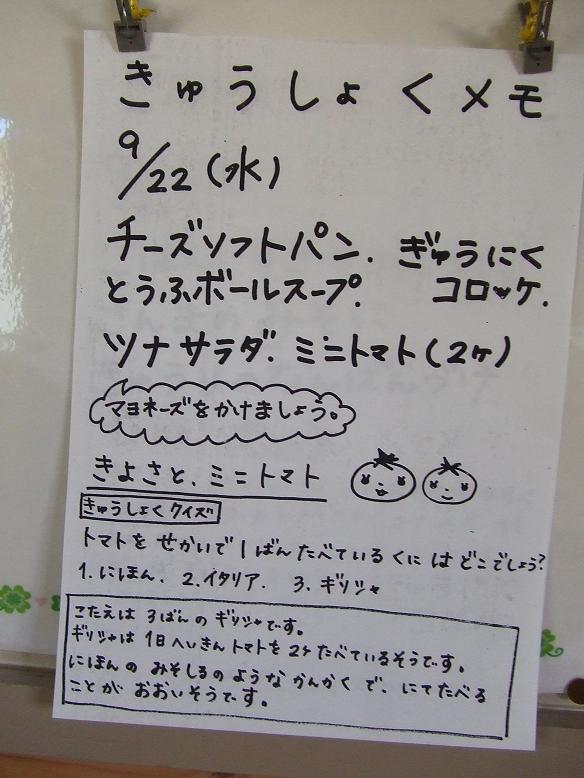 きゅうしょくメモ
9/22(水)
チーズソフトパン. ぎゅうにく
とうふボールスープ. コロッケ.
ツナサラダ. ミニトマト(2ヶ)
マヨネーズをかけましょう。
きよさと、ミニトマト
きゅうしょくクイズ
トマトを せかいで 1ばん たべている くに は どこでしょう?
1. にほん. 2. イタリア. 3. ギリシャ
こたえは 3ばん の ギリシャです。
ギリシャは 1日 へいきん トマトを 2ヶ たべているそうです。
にほんの みそしるの ような かんかく で、にて たべる
ことが おおいそうです。